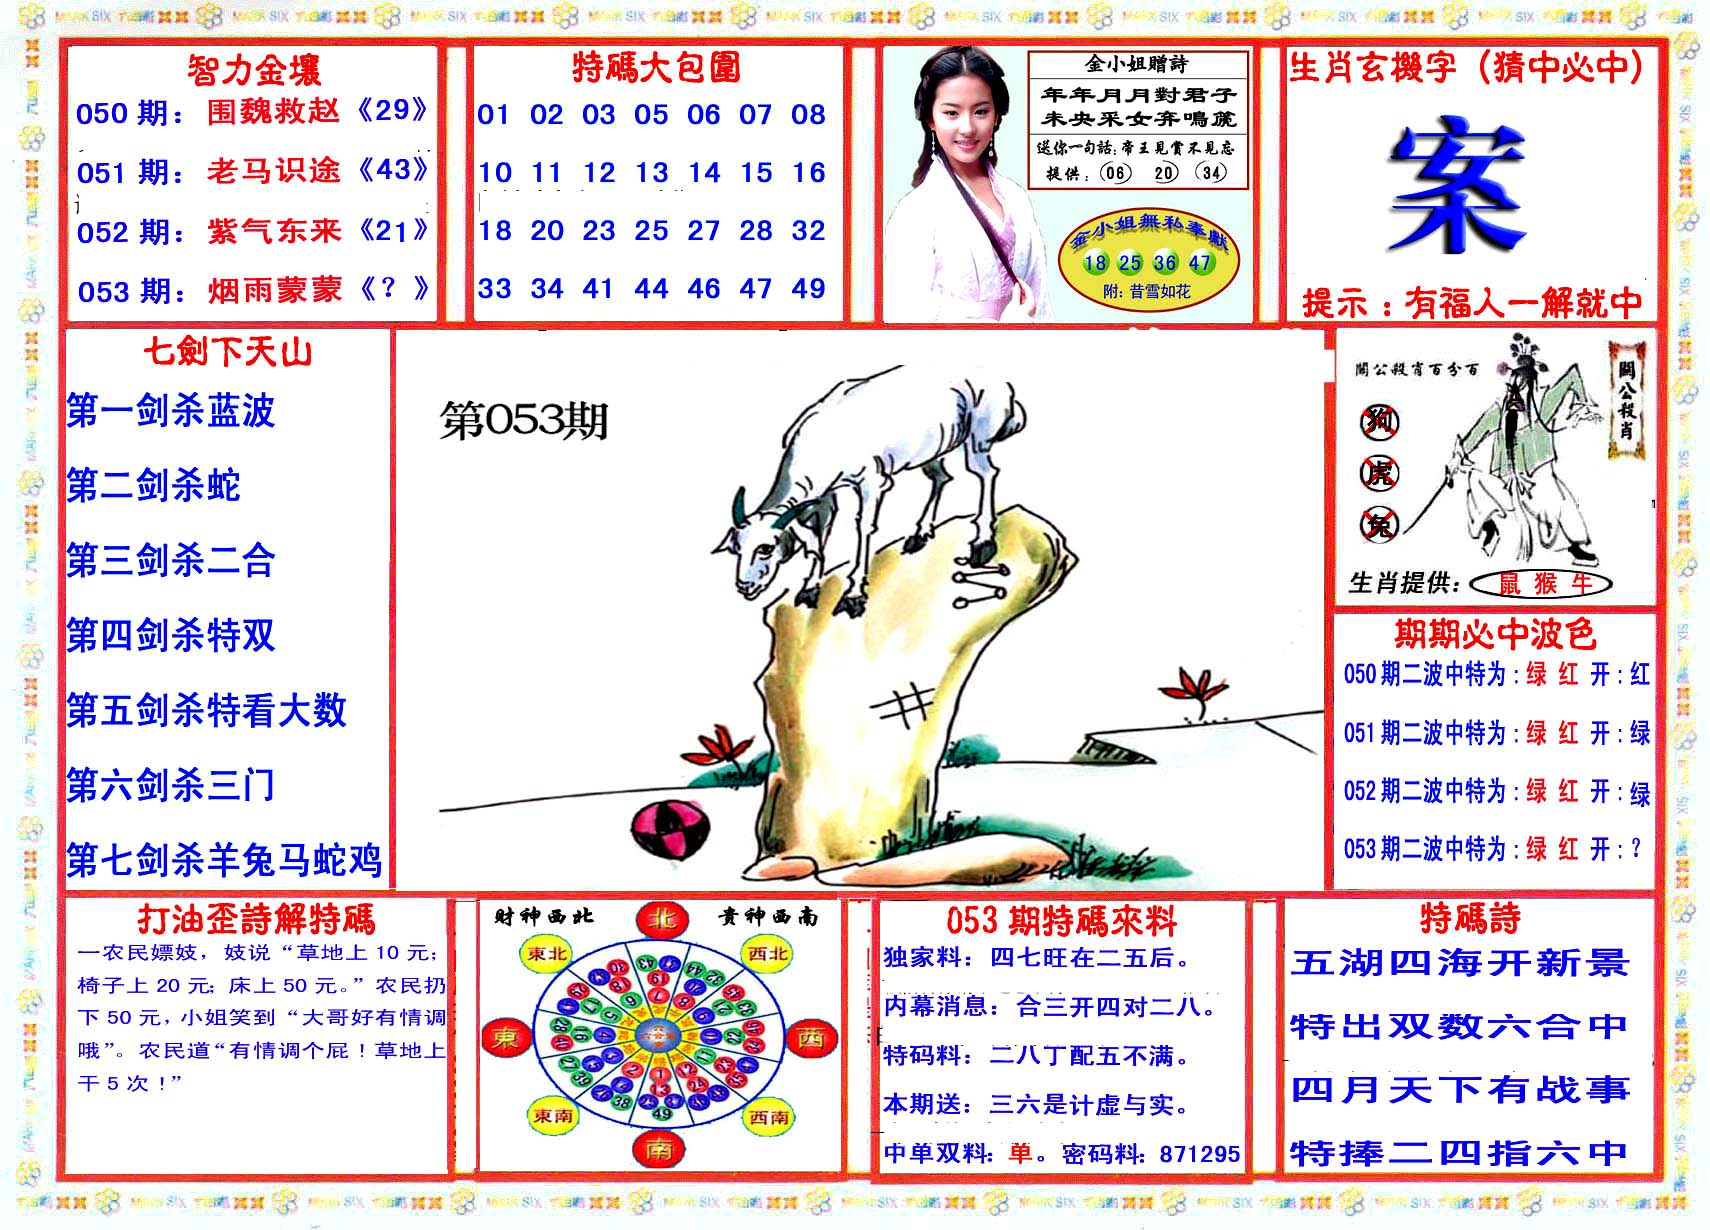 智力金壤
050期：围魏救赵《29》
051期：老马识途《43》
052期：紫气东来《21》
053期：烟雨蒙蒙《？》
特碼大包圍
01 02 03 05 06 07 08
10 11 12 13 14 15 16
18 20 23 25 27 28 32
33 34 41 44 46 47 49
金小姐贈詩
年年月月對君子
未央采女奔鳴麃
送你一句話：帝王見賞不見忘
提供：06 20 34
金小姐無私奉獻
18 25 36 47
附：昔雪如花
生肖玄機字（猜中必中）
案
提示：有福人一解就中
七劍下天山
第一剑杀蓝波
第二剑杀蛇
第三剑杀二合
第四剑杀特双
第五剑杀特看大数
第六剑杀三门
第七剑杀羊兔马蛇鸡
第053期
關公殺肖百分百
關公殺肖
狗
虎
兔
生肖提供：鼠 猴 牛
期期必中波色
050期二波中特为：绿 红 开：红
051期二波中特为：绿 红 开：绿
052期二波中特为：绿 红 开：绿
053期二波中特为：绿 红 开：？
打油歪詩解特碼
一农民嫖妓，妓说“草地上10元；
椅子上20元；床上50元。”农民扔
下50元，小姐笑到“大哥好有情调
哦”。农民道“有情调个屁！草地上
干5次！”
財神西北 貴神西南
北
東北 西北
東 西
東南 西南
南
053期特碼來料
独家料：四七旺在二五后。
内幕消息：合三开四对二八。
特码料：二八丁配五不满。
本期送：三六是计虚与实。
中单双料：单。密码料：871295
特碼詩
五湖四海开新景
特出双数六合中
四月天下有战事
特捧二四指六中